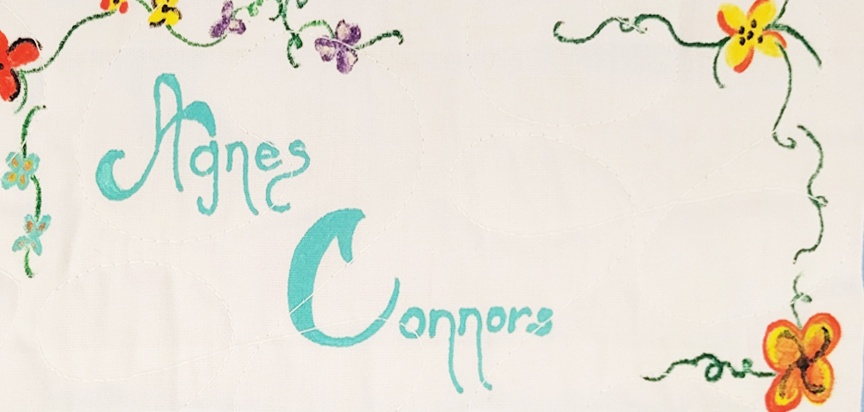 Agnes
Connors